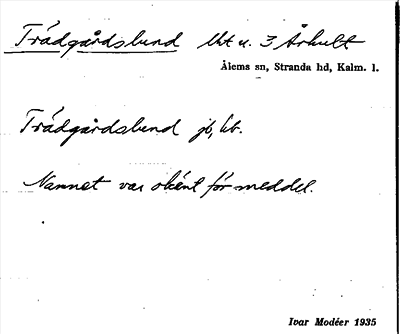 Trädgårdslund lht u. 3 Århult
Ålems sn, Stranda hd, Kalm. l.
Trädgårdslund jb, kb.
Namnet var okänt för meddel.
Ivar Modéer 1935